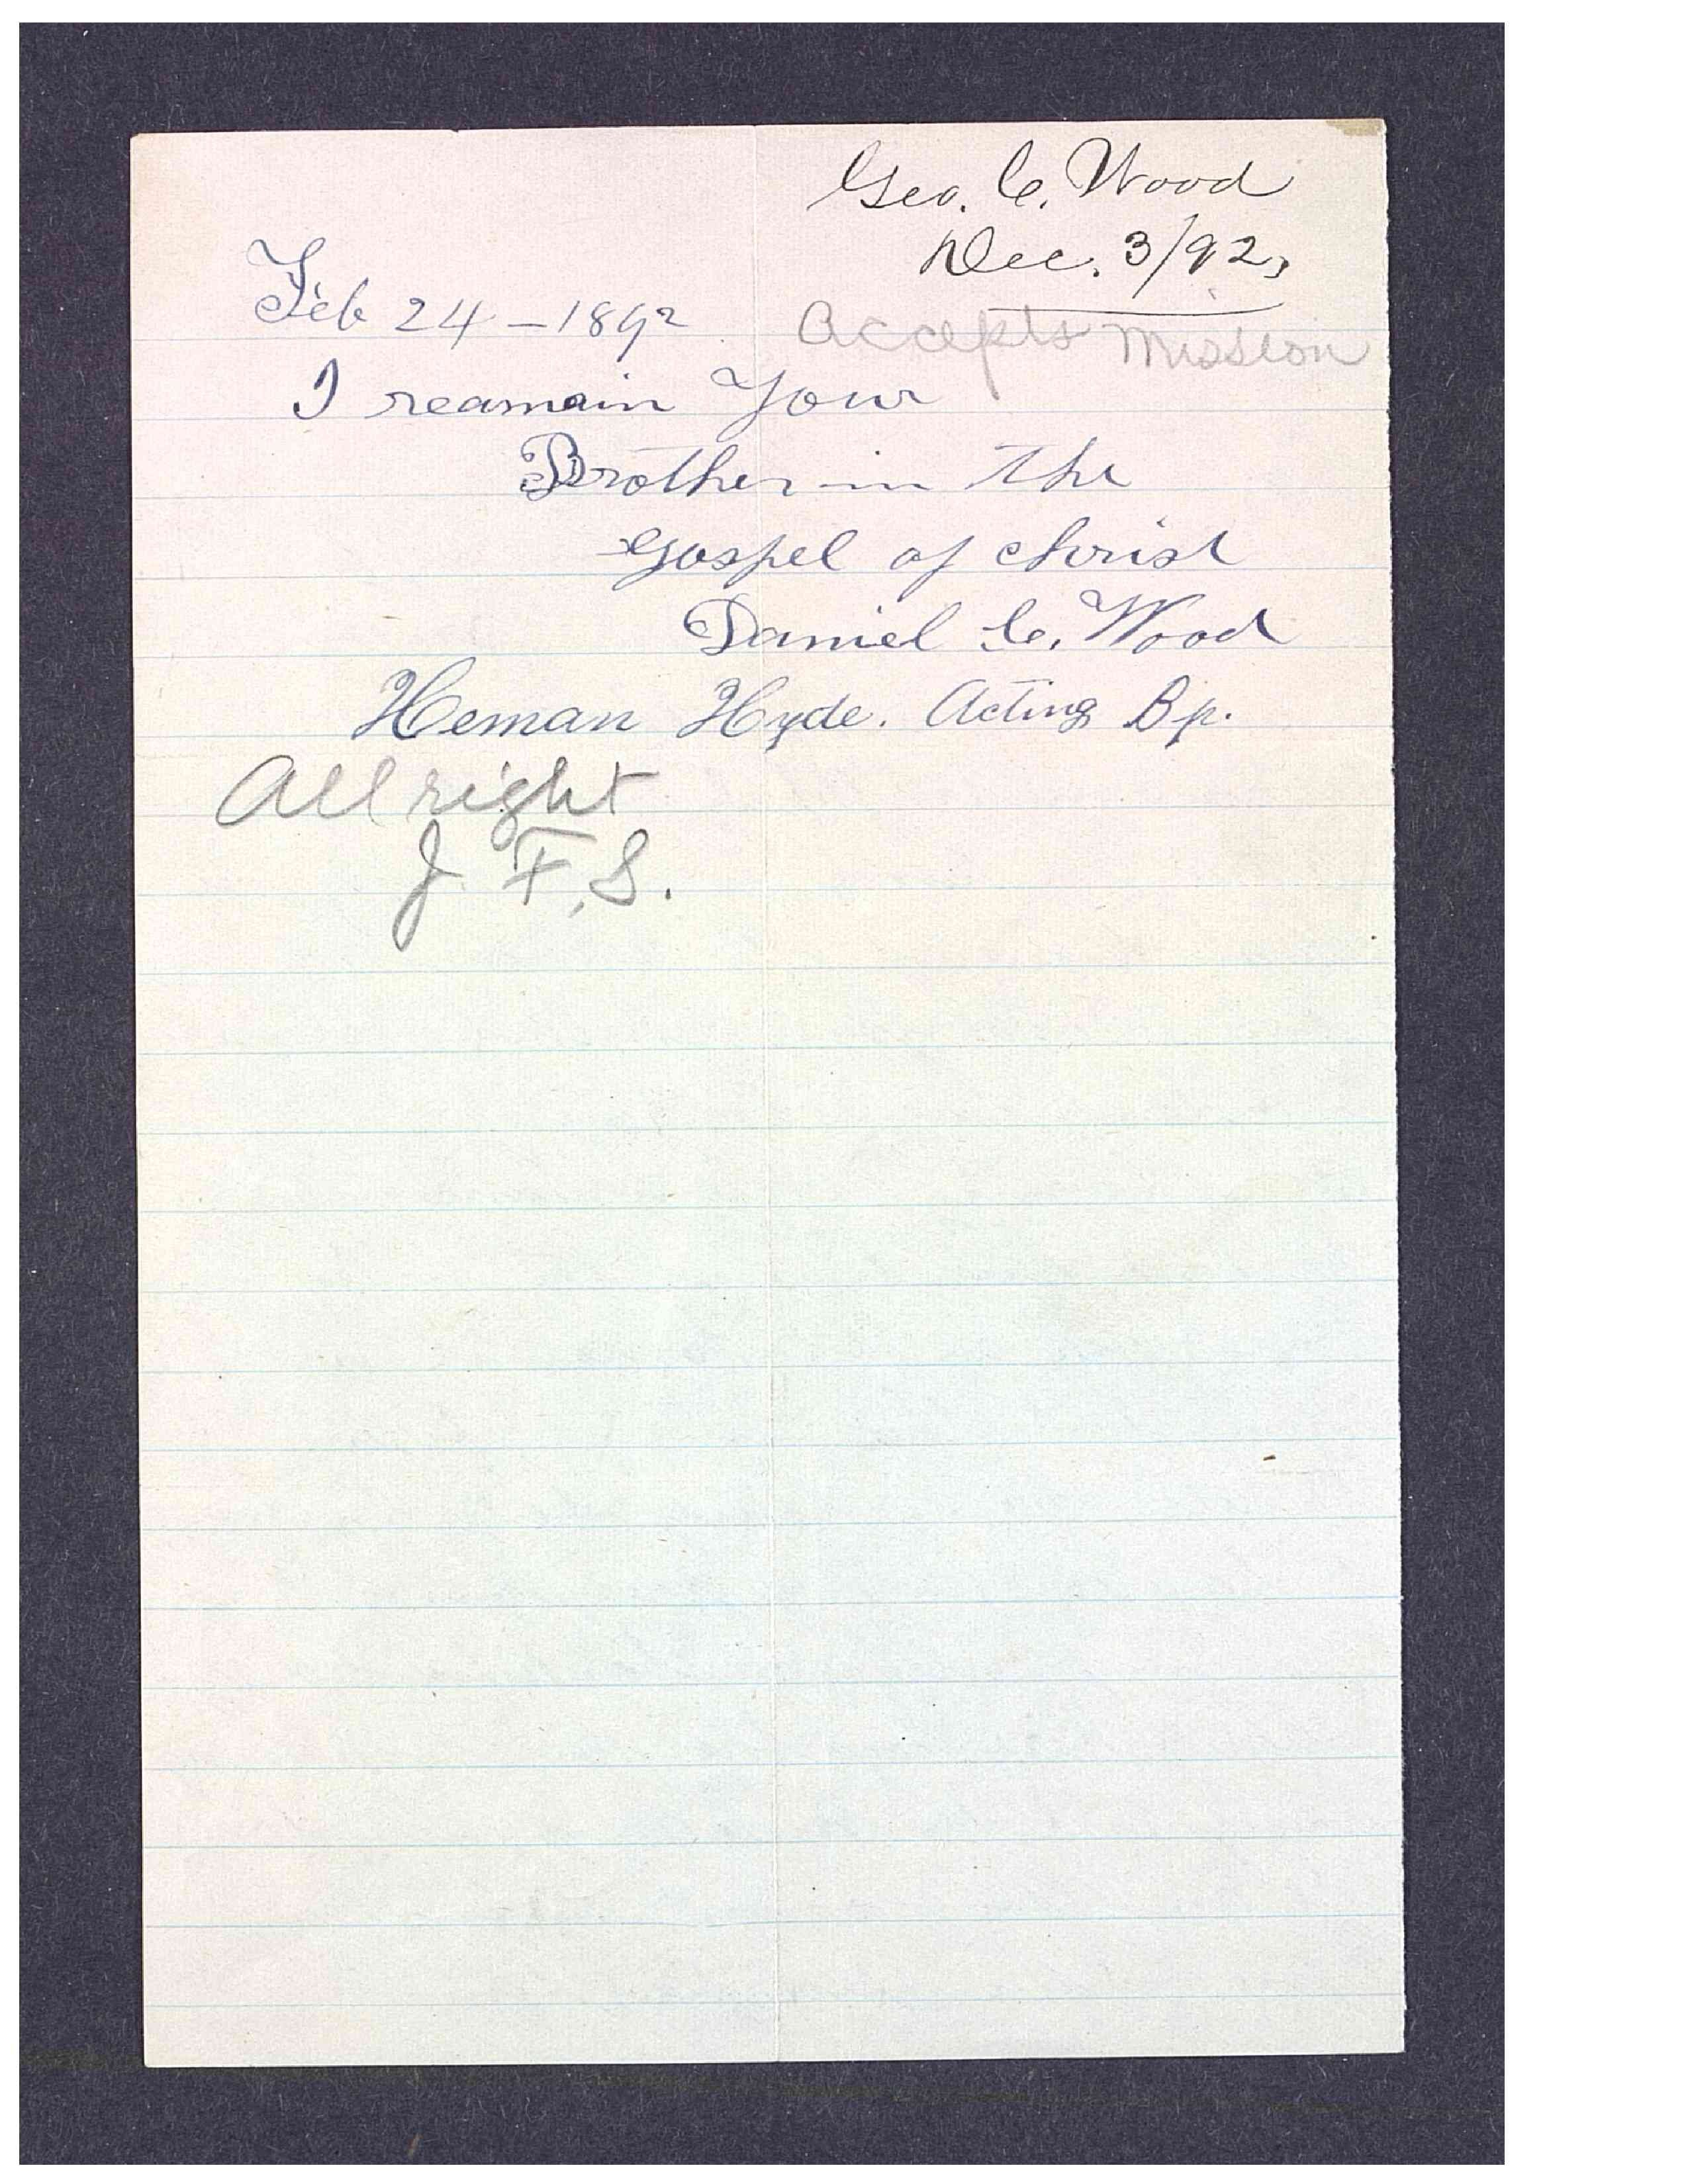 Geo. C. Wood
Dec. 3/92,
Accepts Mission
Feb 24 - 1892
I reamain Your
Brother in the
Gospel of christ
Daniel C. Wood
Heman Hyde. Acting Bp.
All right
J. F. S.